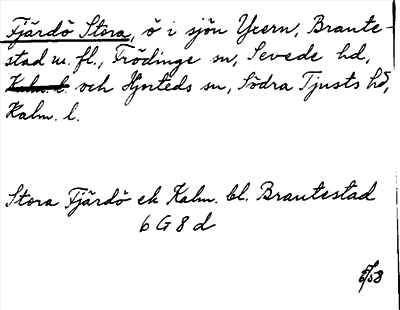 Fjärdö Stora, ö i sjön Yxern, Brante-
stad m. fl., Frödinge sn, Sevede hd,
Kalm. l. och Hjorteds sn, Södra Tjusts hd,
Kalm. l.
Stora Fjärdö ek Kalm. bl. Brantestad
6 G 8 d
5/58